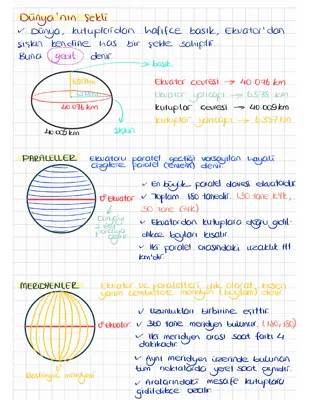 Dünya'nın Şekli
✓ Dünya, kutuplardan hafifçe basık, Ekvator'dan
şişkin kendine has bir şekle sahiptir.
Buna geoit denir.
basık
Ekvator çevresi → 40 076 km
Ekvator yarıçapı → 6.378 km
Kutuplar çevresi → 40 009 km
Kutuplar yarıçapı → 6.357 km
40 076 km
40 009 km
şişkin
PARALELLER
Ekvatora paralel geçtiği varsayılan hayali
çizgilere paralel (enlem) denir.
0° Ekvator
Dünyayı
2 eşit
parçaya
✓ En büyük paralel dairesi ekvatordur.
✓ Toplam 180 tanedir. (90 tane KYK,
90 tane GYK)
✓ Ekvatordan kutuplara doğru gidil-
dikçe boyları kısalır.
✓ İki paralel arasındaki uzaklık 111
km'dir.
MERİDYENLER
Ekvator ve paralelleri dik olarak kesen
yarım çemberlere meridyen (boylam) denir.
0° ekvator
Başlangıç meridyeni
✓ Uzunlukları birbirine eşittir.
✓ 360 tane meridyen bulunur. (180, 180)
✓ İki meridyen arası saat farkı 4
dakikadır.
✓ Aynı meridyen üzerinde bulunan
tüm noktalarda yerel saat aynıdır.
✓ Aralarındaki mesafe kutuplara
gidildikçe azalır.